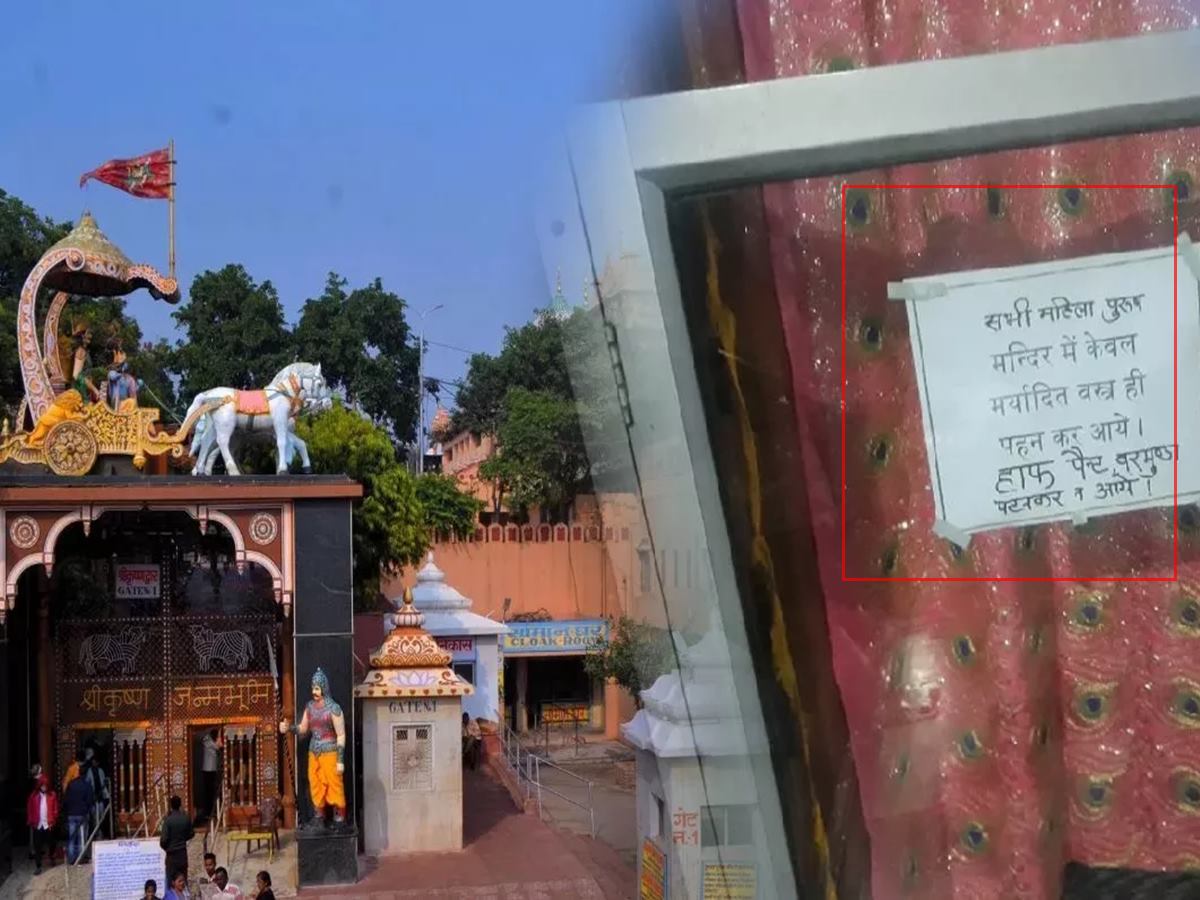 श्रीकृष्णद्वार
GATE N-1
श्रीकृष्ण जन्मभूमि
GATE-1
निकास
सामान घर
CLOAK ROOM
गेट
न.-1
सभी महिला पुरूष
मन्दिर में केवल
मर्यादित वस्त्र ही
पहन कर आये।
हाफ पैन्ट, वरमुण्डा
पहनकर न आये!